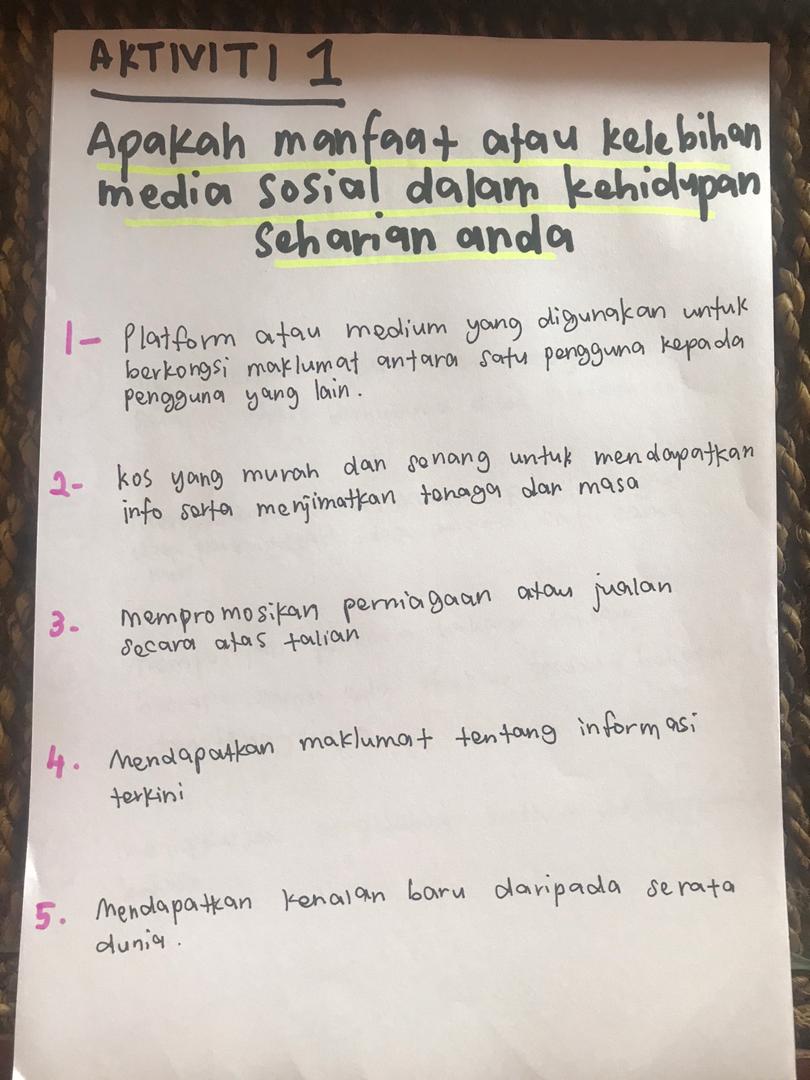 AKTIVITI 1
Apakah manfaat atau kelebihan
media sosial dalam kehidupan
seharian anda
1- Platform atau medium yang digunakan untuk
berkongsi maklumat antara satu pengguna kepada
pengguna yang lain.
2- kos yang murah dan senang untuk mendapatkan
info serta menjimatkan tenaga dan masa
3. mempromosikan perniagaan atau jualan
secara atas talian
4. Mendapatkan maklumat tentang informasi
terkini
5. Mendapatkan kenalan baru daripada serata
dunia.